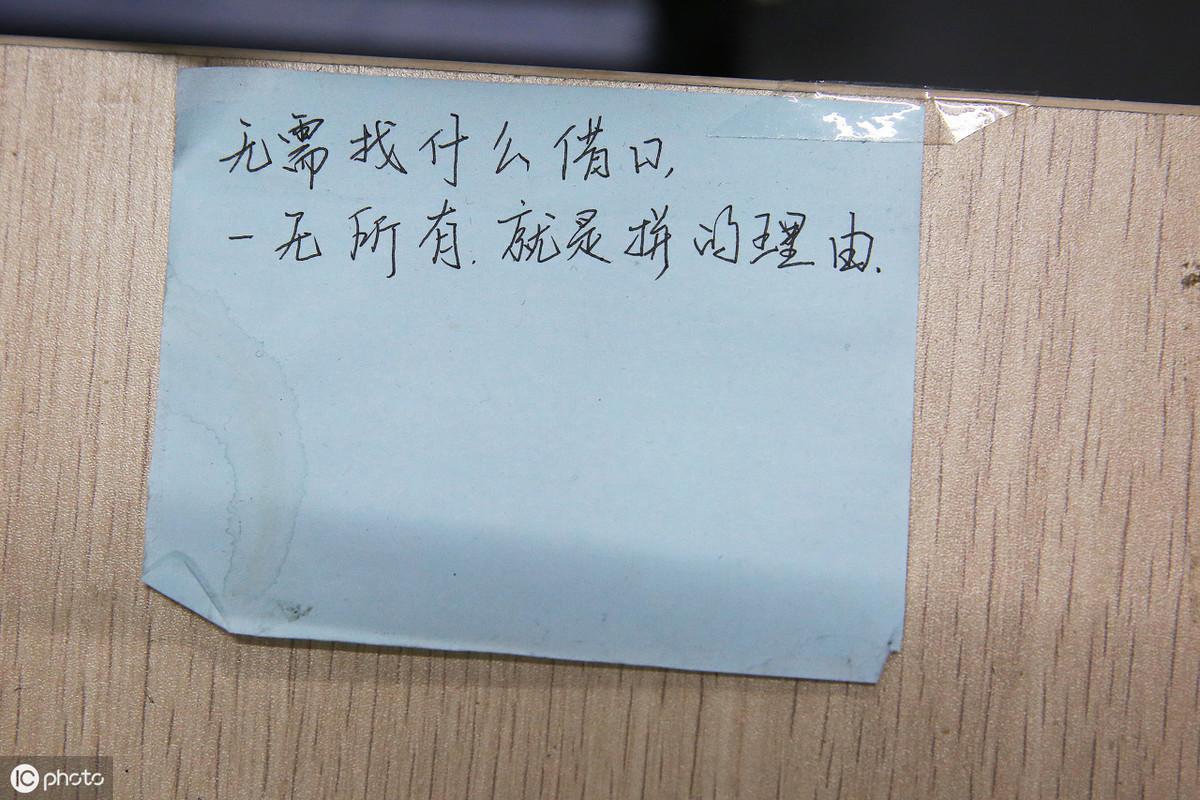 无需找什么借口,
一无所有.就是拼的理由.
IC photo